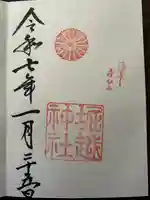 堀越
神社
令和七年一月二十五日